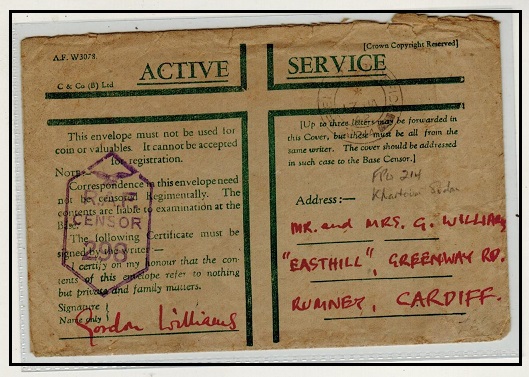 A.F. W3078.
[Crown Copyright Reserved]
C & Co (B) Ltd
ACTIVE SERVICE
This envelope must not be used for
coin or valuables. It cannot be accepted
for registration.
NOTE:—
Correspondence in this envelope need
not be censored Regimentally. The
contents are liable to examination at the
Base.
The following Certificate must be
signed by the writer:—
I certify on my honour that the con-
tents of this envelope refer to nothing
but private and family matters.
Signature
Name only
Gordon Williams
R.A.F
CENSOR
298
[Up to three letters may be forwarded in
this Cover, but these must be all from the
same writer. The cover should be addressed
in such case to the Base Censor.]
FPO 214
Khartoum Sudan
Address:—
MR. and MRS. G. WILLIAMS
"EASTHILL", GREENWAY RD.
RUMNEY, CARDIFF.